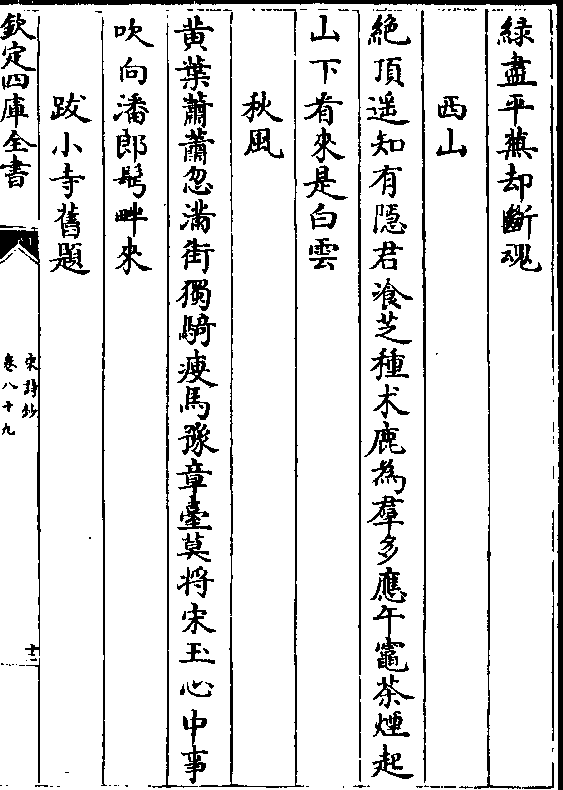 緑盡平蕪却斷魂
西山
絶頂遥知有隠君飡芝種术鹿為羣多應午竈茶煙起
山下看來是白雲
秋風
黄葉蕭蕭忽滿街獨騎瘦馬豫章臺莫將宋玉心中事
吹向潘郎鬂畔來
跋小寺舊題
欽定四庫全書
宋詩鈔
卷八十九
十二